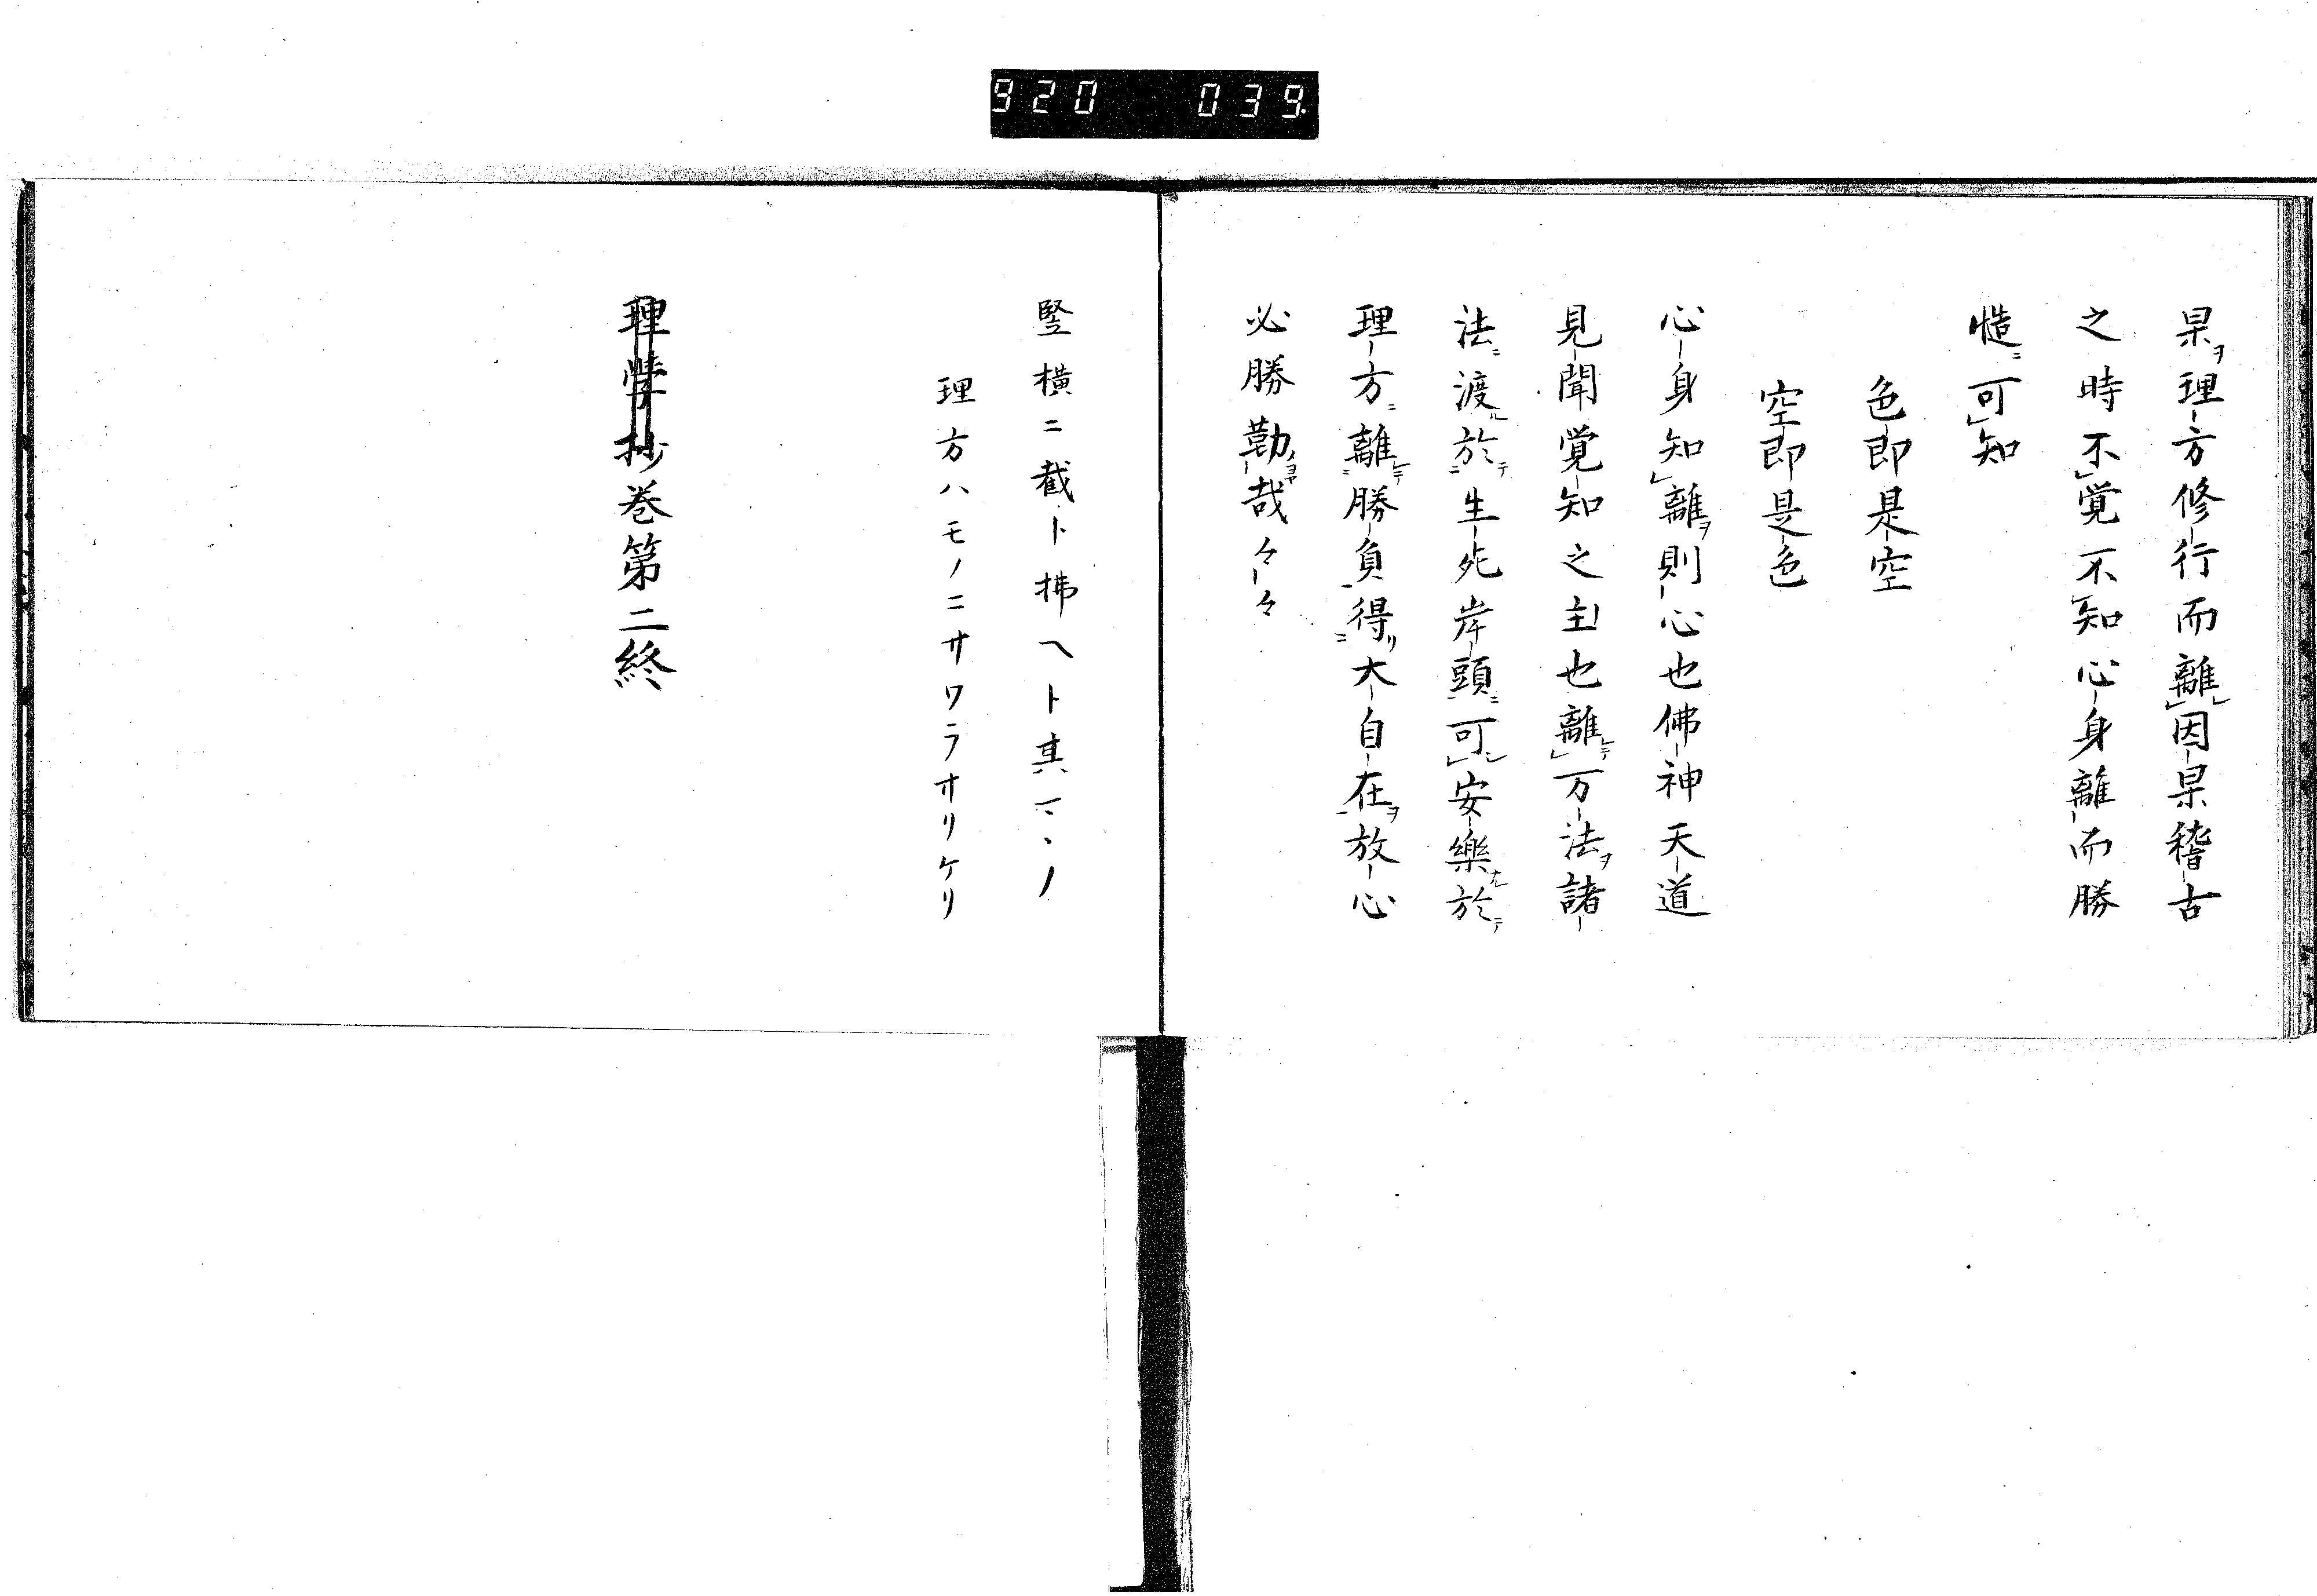 920 039.
杲ヲ理方修行而離レ因杲稽古
之時不レ覚不レ知心身離而勝
慥ニ可レ知
色即是空
空即是色
心身知レ離ヲ則心也佛神天道
見聞覚知之主也離レ万法ヲ諸
法ニ渡ル於テ生死岸頭ニ可レ安樂ナル於テ
理方ニ離シテ勝負得リ大自在ヲ放心
必勝勤哉々々
竪横ニ截ト拂ヘト其マヽノ
理方ハモノニサワラサリケリ
理学抄巻第二終